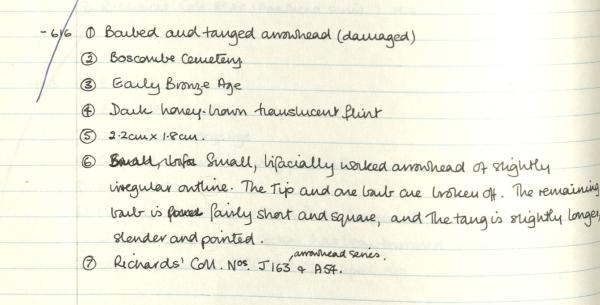 -616 ① Barbed and tanged arrowhead (damaged)
② Boscombe Cemetery
③ Early Bronze Age
④ Dark honey-brown translucent flint
⑤ 2.2cm x 1.8cm.
⑥ Small, bifacially worked arrowhead of slightly
irregular outline. The tip and one barb are broken off. The remaining
barb is fairly short and square, and the tang is slightly longer,
slender and pointed.
⑦ Richards' Coll. Nos. J163 arrowhead series. & A54.